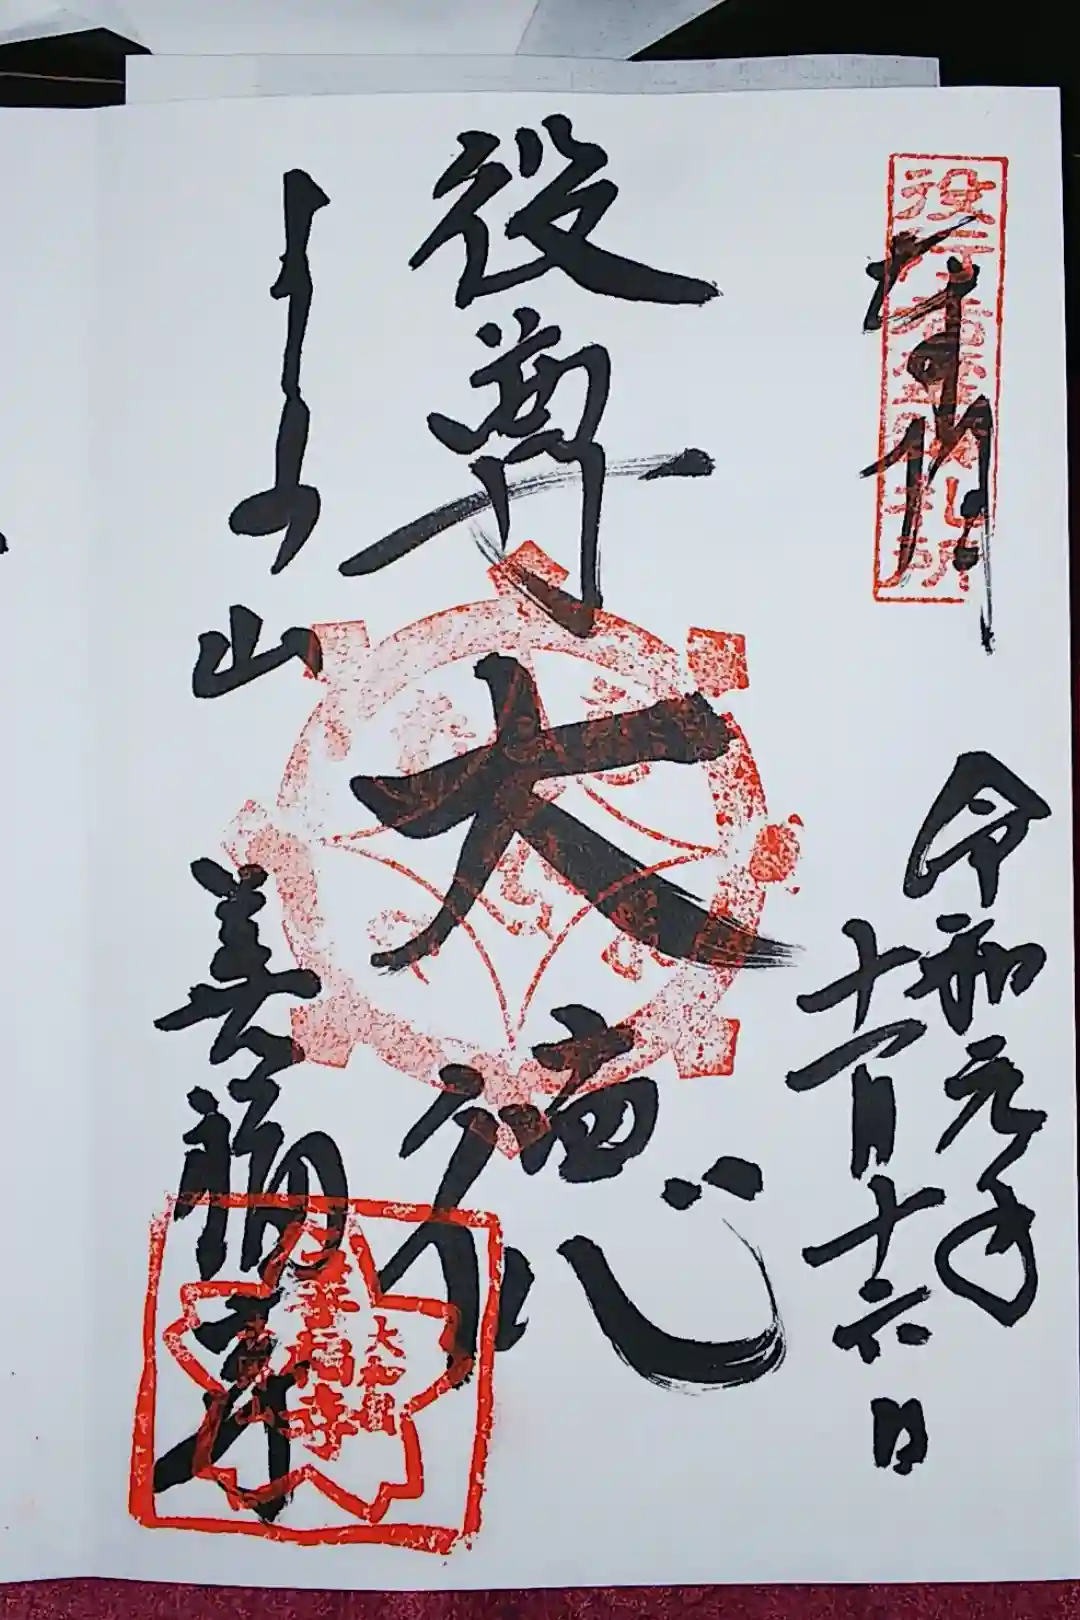 奉拝
役行者霊蹟札所
令和元年
十一月十六日
役尊
大徳
吉野山
善福寺
大和國
善福寺
吉野山